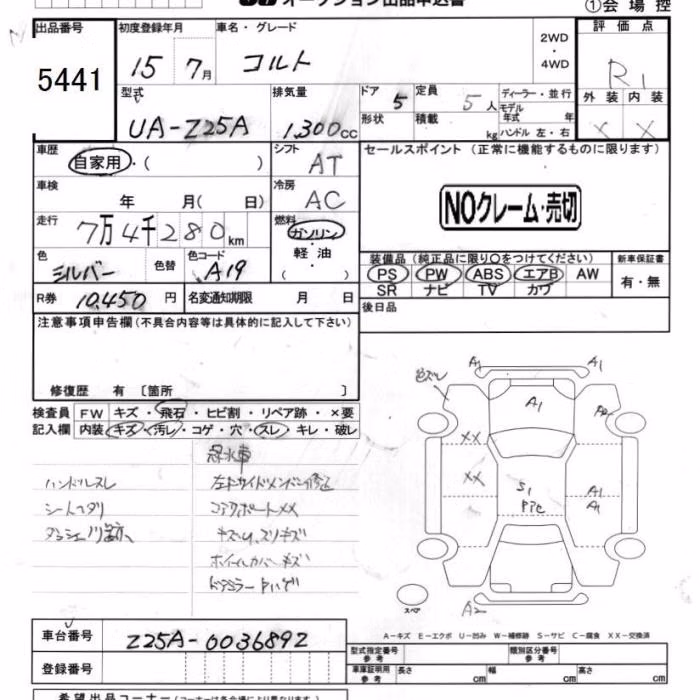 オークション出品申込書
①会場控
出品番号
5441
初度登録年月
15 7月
車名・グレード
コルト
2WD
・
4WD
評価点
R1
型式
UA-Z25A
排気量
1,300cc
ドア 5
定員 5人
ディーラー・並行
モデル年式 年
形状
積載 kg
ハンドル 左・右
外装 内装
X X
車歴
自家用・( )
シフト
AT
セールスポイント(正常に機能するものに限ります)
NOクレーム・売切
車検
年 月( 日)
冷房
AC
走行
7万4千280km
燃料
ガソリン
・
軽油
・
( )
色
シルバー
色替
色コード
A19
装備品(純正品に限り〇をつけてください)
PS PW ABS エアB AW
SR ナビ TV カワ
新車保証書
有・無
R券 10,450円
名変通知期限 月 日
後日品
注意事項申告欄(不具合内容等は具体的に記入して下さい)
修復歴 有〔箇所 〕
検査員記入欄
FW キズ・飛石・ヒビ割・リペア跡・×要
内装 キズ・汚レ・コゲ・穴・スレ・キレ・破レ
冠水車
ハンドルスレ
シートヘタリ
コアサポートXX
ホイールカバーキズ
A1 A1
A1
XX
XX
S1
A1
A1
A2
スペア
A-キズ E-エクボ U-凹み W-補修跡 S-サビ C-腐食 XX-交換済
車台番号
Z25A-0036892
登録番号
型式指定番号 参考
類別区分番号 参考
車庫証明用 参考
長さ cm
幅 cm
高さ cm
希望出品コーナー(コーナーは各会場により異なります)